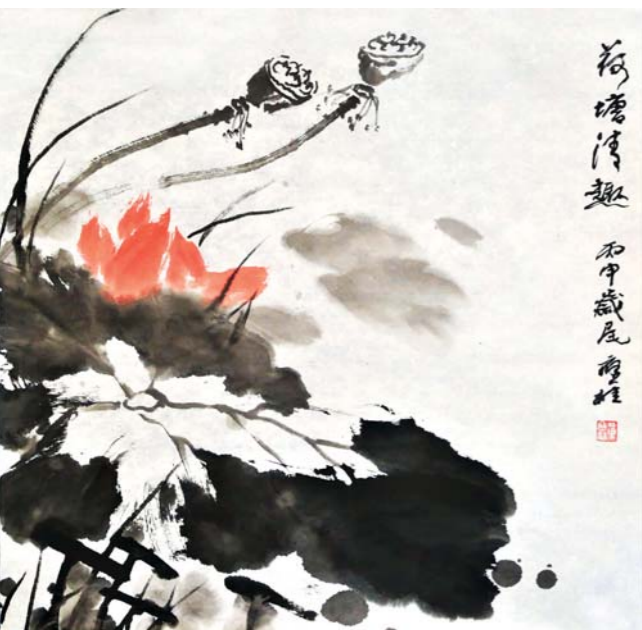 荷塘清趣 丙申歲尾